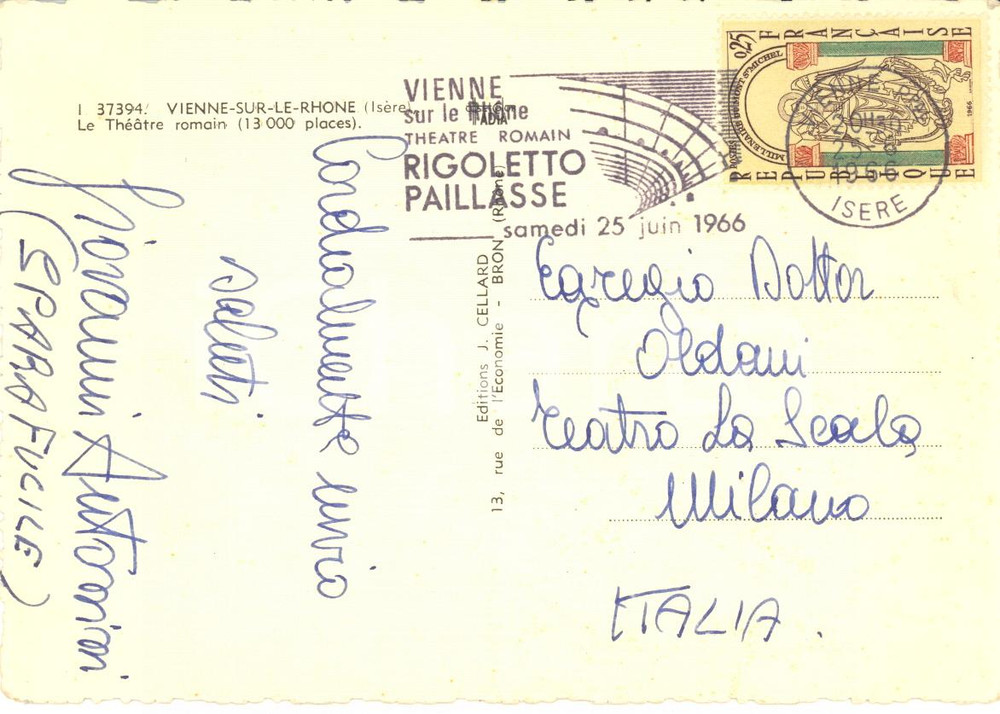 I 37394. VIENNE-SUR-LE-RHONE (Isère)
Le Théâtre romain (13 000 places).
VIENNE
sur le Rhône
THEATRE ROMAIN
RIGOLETTO
PAILLASSE
samedi 25 juin 1966
REPUBLIQUE
FRANÇAISE
0,25
MILLENAIRE DU MONT ST MICHEL
1966
25
1966
ISERE
Editions J. CELLARD
13, rue de l'Economie - BRON (Rhône)
Cordialmente invio
saluti
Giovanni Antonini
(SPARAFUCILE)
Egregio Dottor
Oldani
Teatro La Scala
Milano
ITALIA.